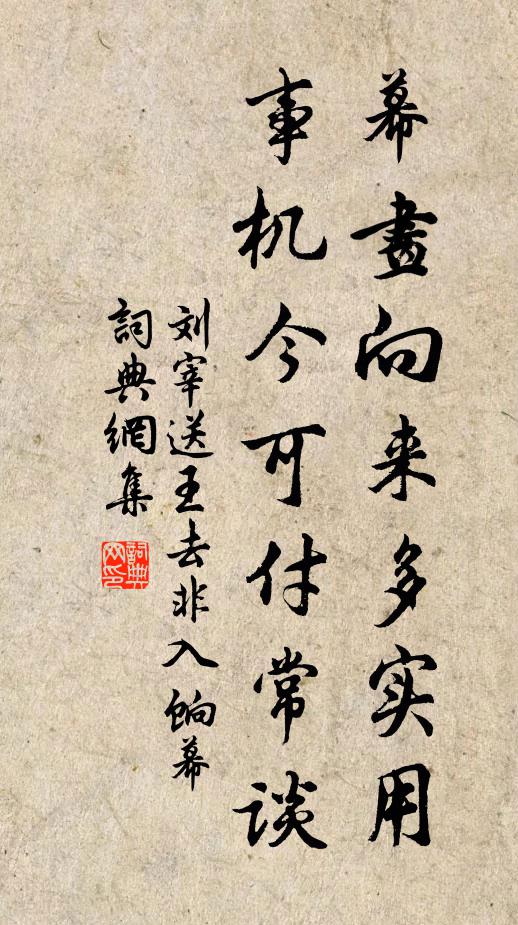 幕畫向来多实用
事机今可付常谈
刘宰送王去非入餉幕
詞典網集
詞典网印